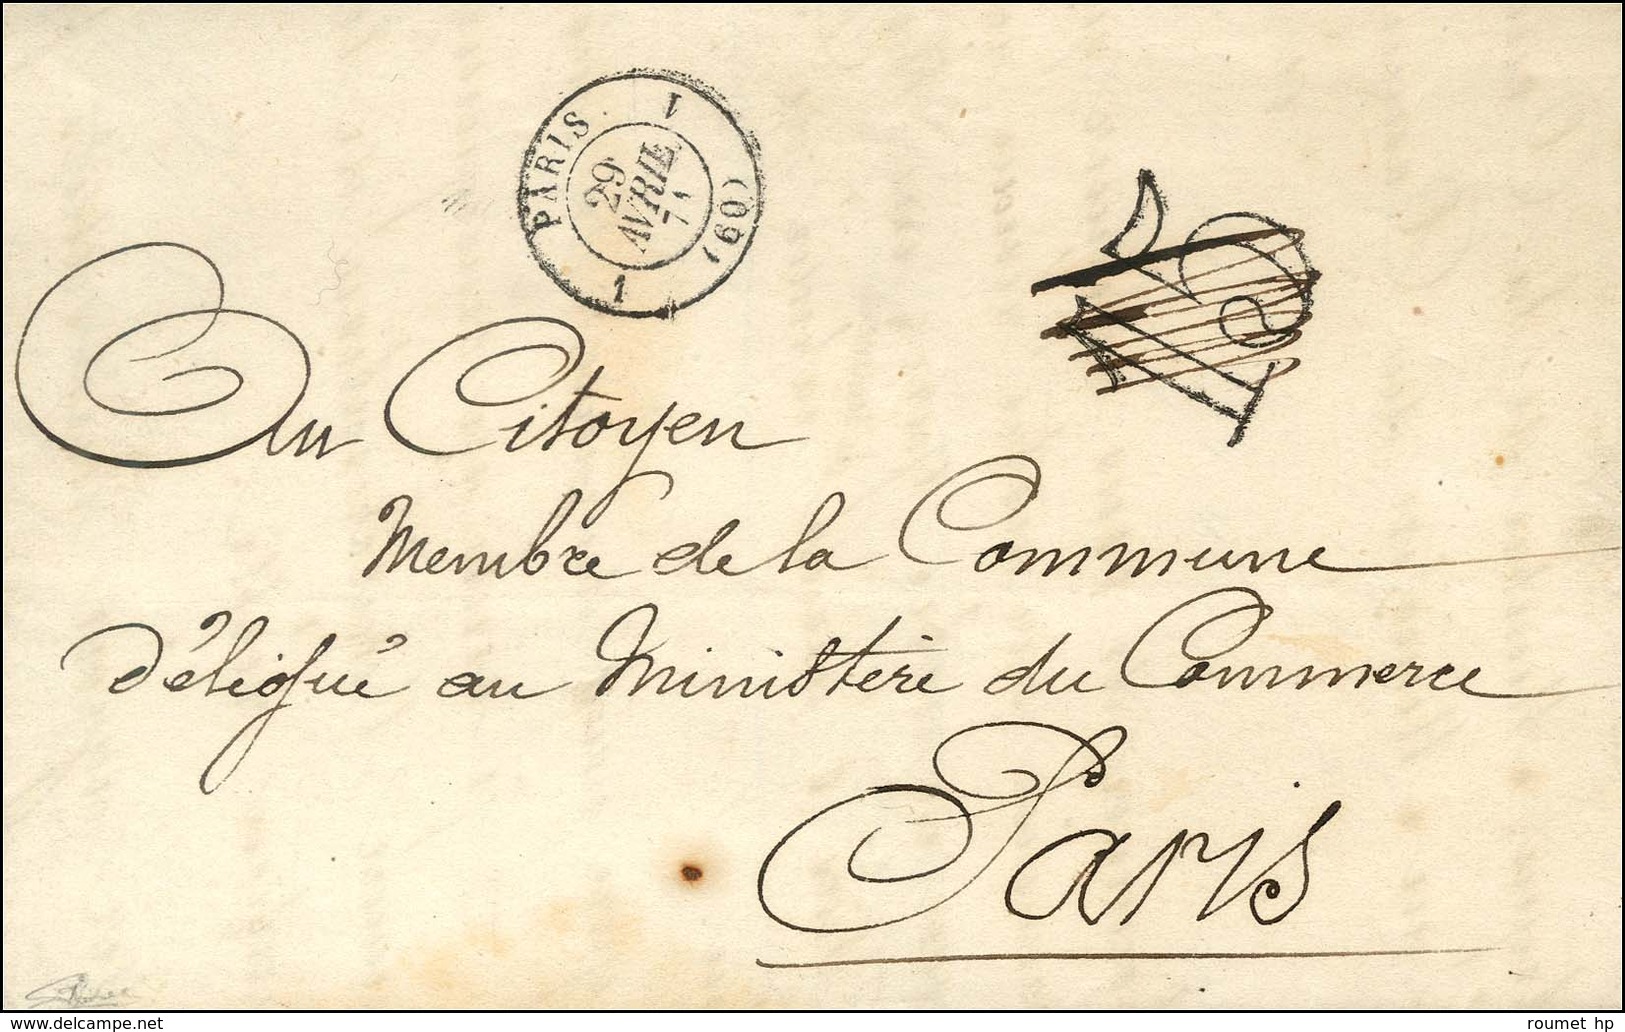 PARIS 1 (60) 1
29
AVRIL
71
15
Au Citoyen
Membre de la Commune
Délégué au Ministère du Commerce
Paris
© www.delcampe.net
roumet hp